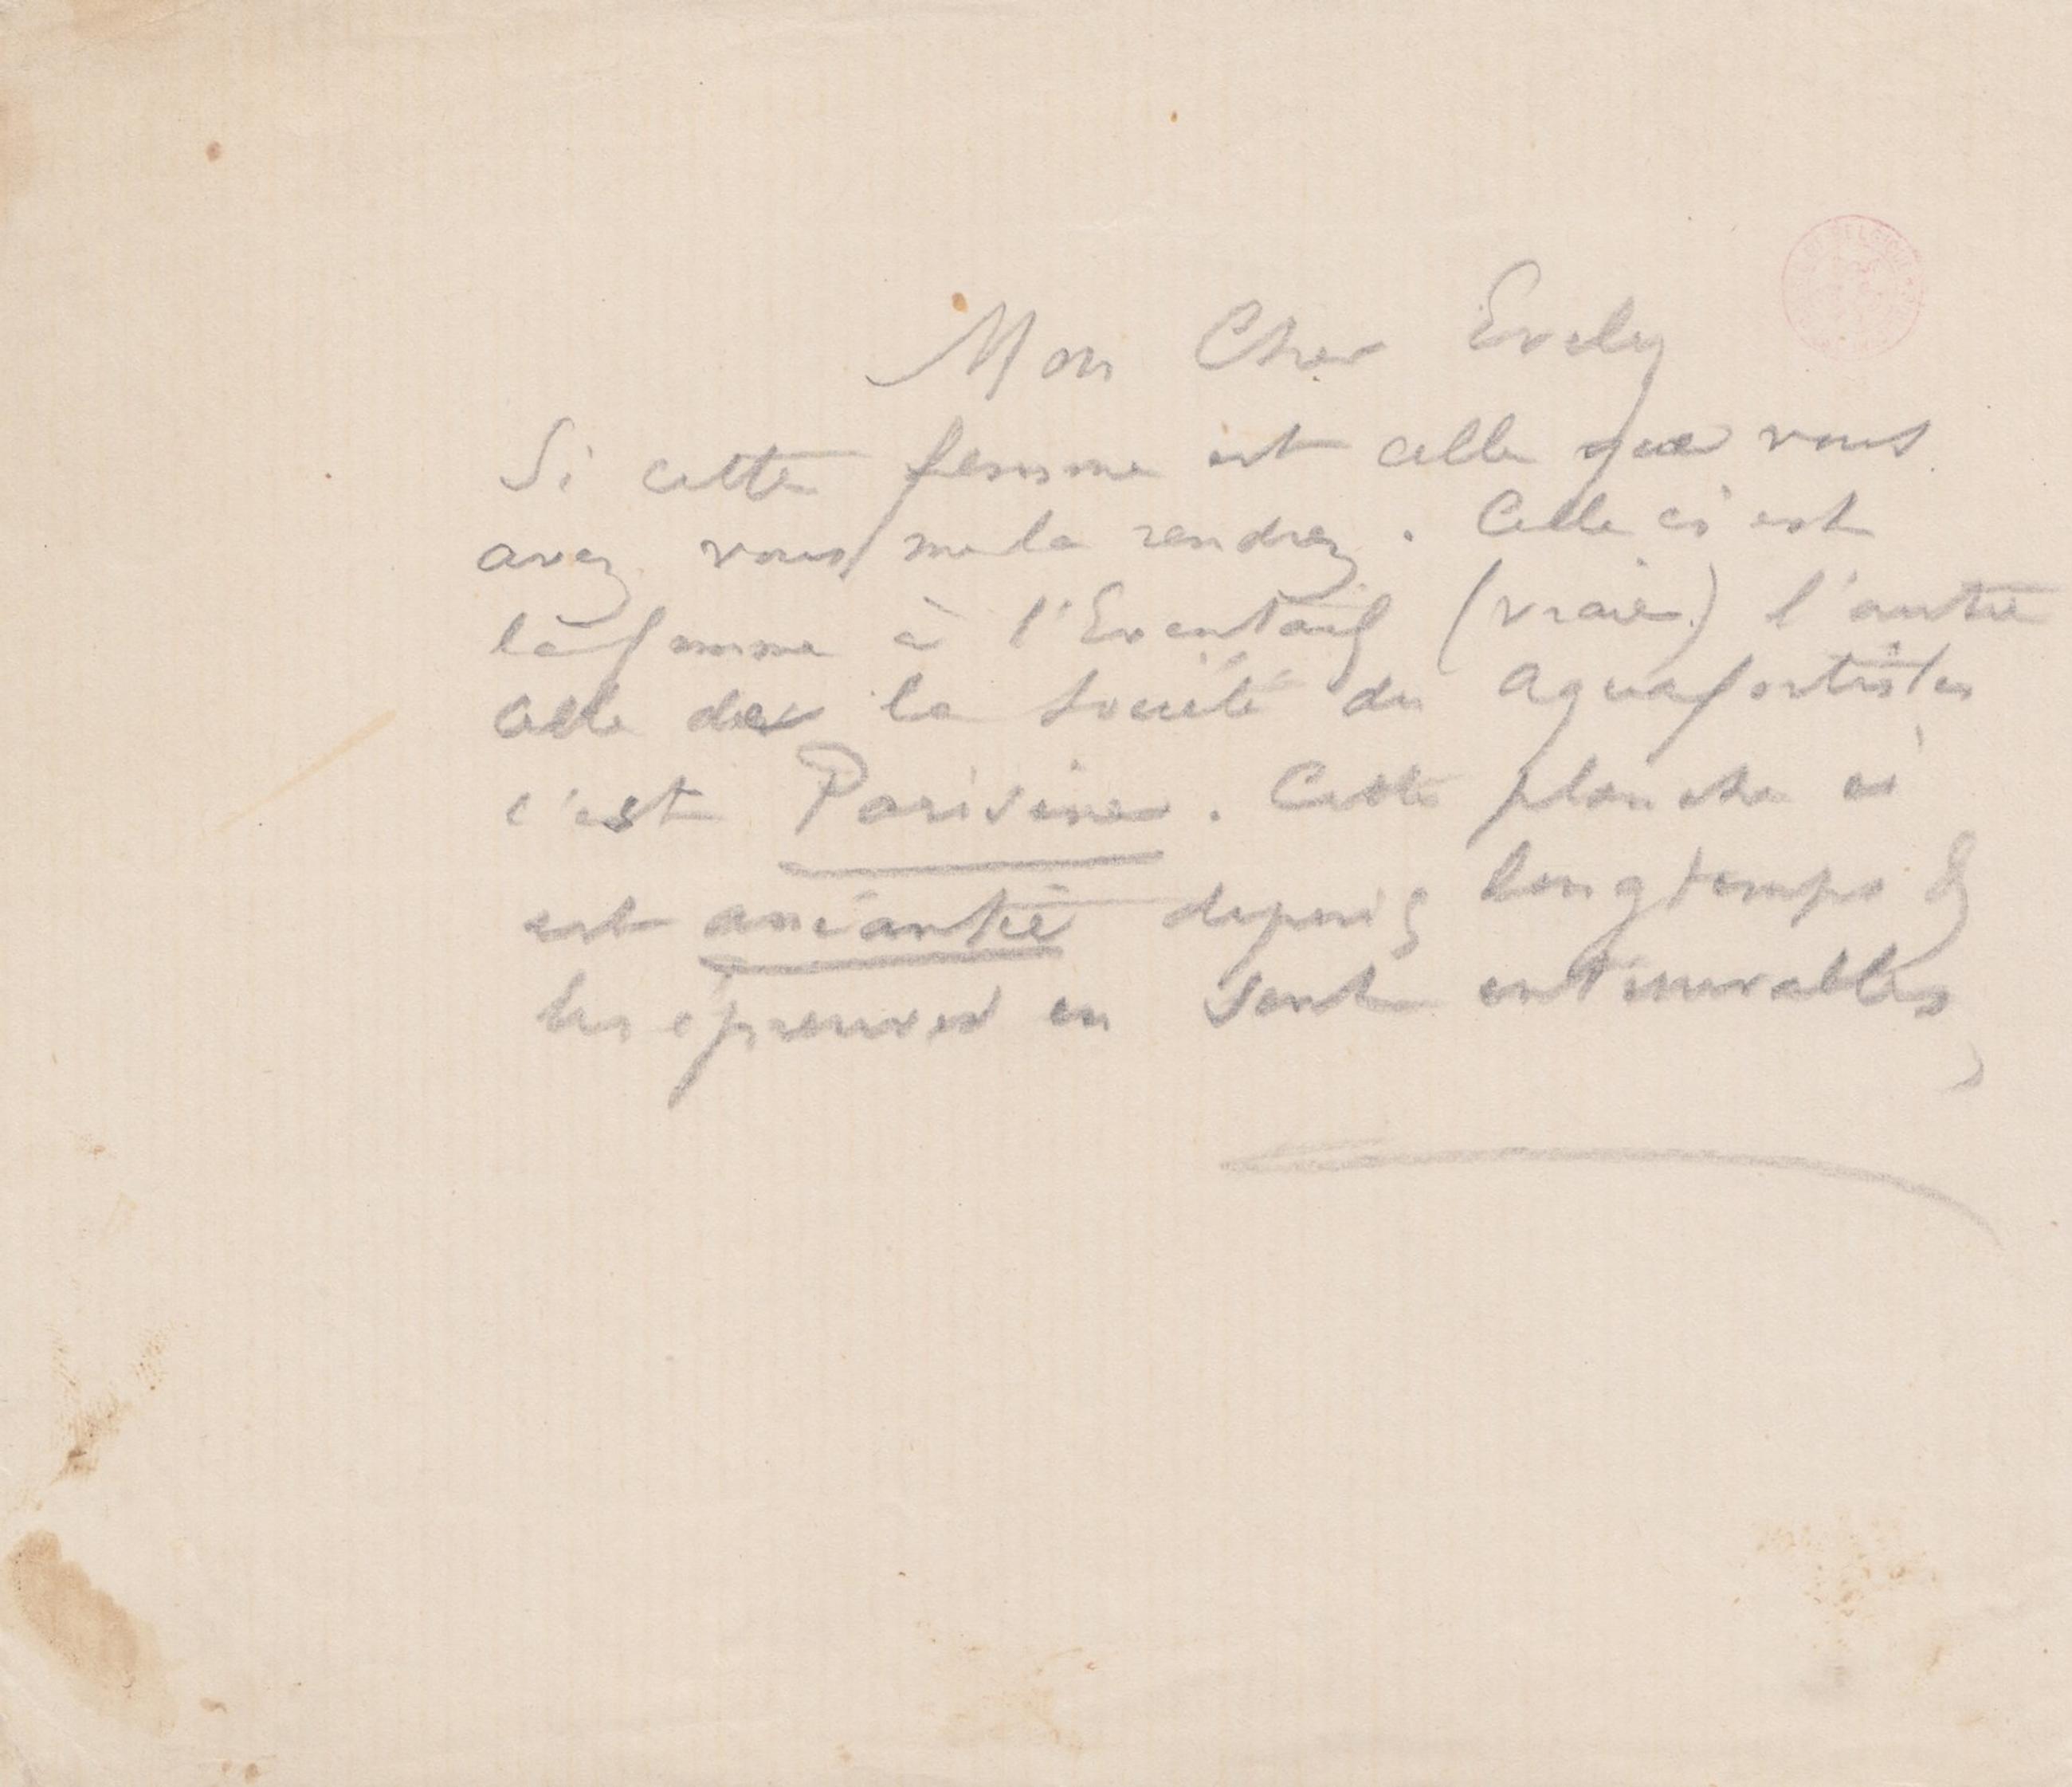 Mon Cher Evely
Si cette femme est celle que vous
avez vous me la rendrez. Celle ci est
la femme à l'Eventail (vraie) l'autre
celle de la Société des Aquafortistes
c'est Parisine. Cette planche ci
est anéantie depuis longtemps &
les épreuves en sont introuvables